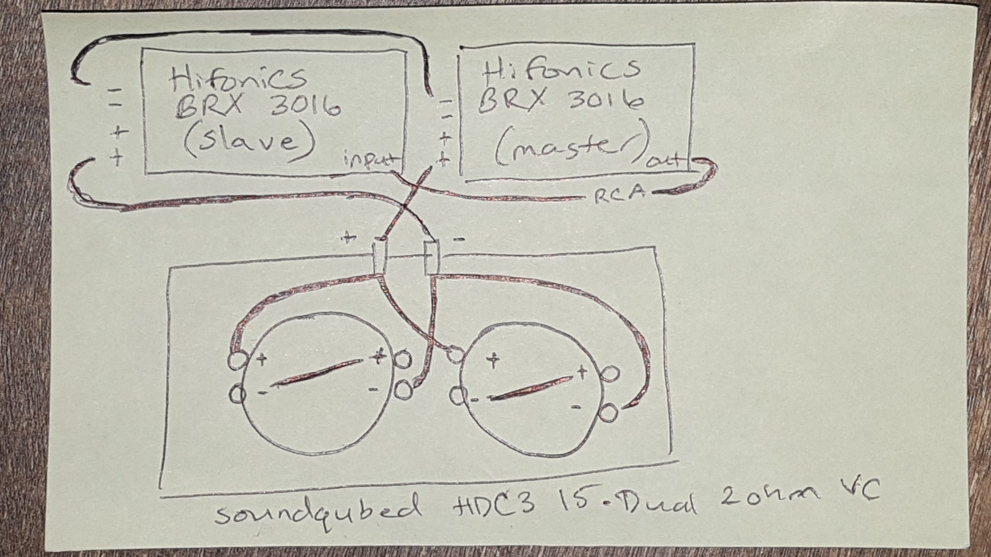 Hifonics
BRX 3016
(slave)
input
-
-
+
+
Hifonics
BRX 3016
(master)
out
-
-
+
+
RCA
+ -
+ +
- -
+ +
- -
soundqubed HDC3 15. Dual 2 ohm VC